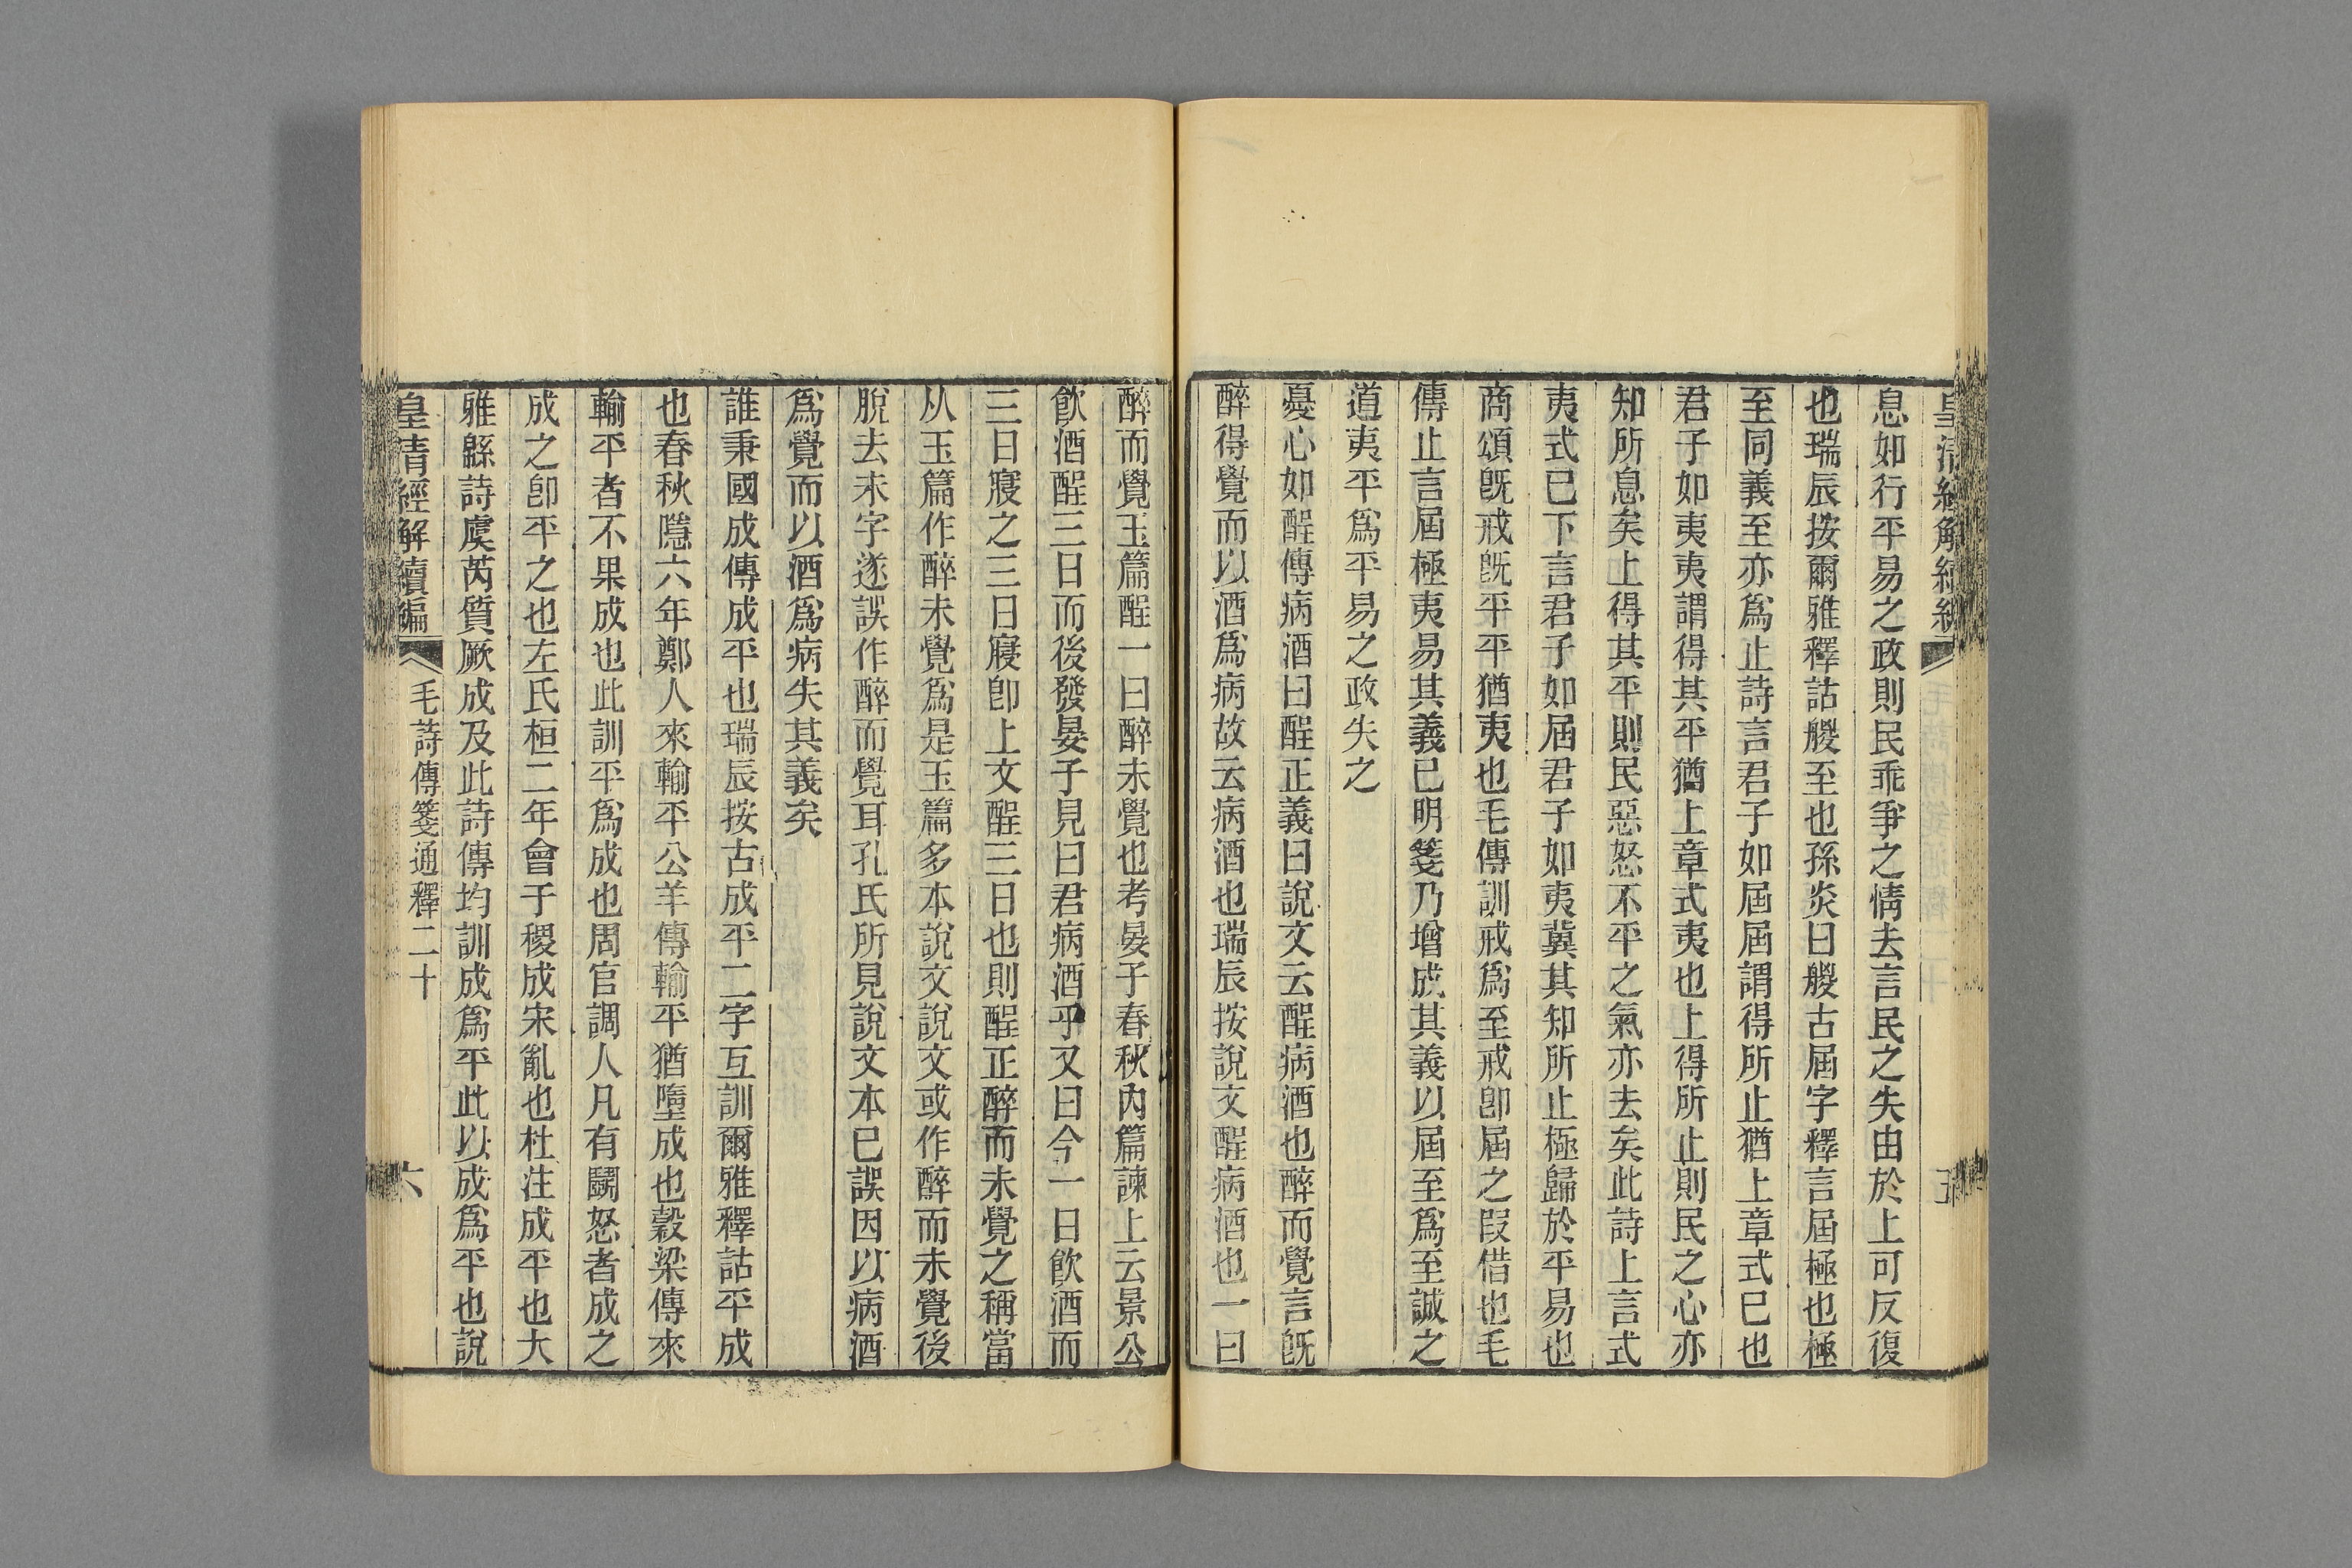 息如行平易之政則民乖爭之情去言民之失由於上可反復
也瑞辰按爾雅釋詁艐至也孫炎曰艐古屆字釋言屆極也極
至同義至亦爲止詩言君子如屆屆謂得所止猶上章式已也
君子如夷夷謂得其平猶上章式夷也上得所止則民之心亦
知所息矣上得其平則民惡怒不平之氣亦去矣此詩上言式
夷式已下言君子如屆君子如夷冀其知所止極歸於平易也
商頌旣戒旣平平猶夷也毛傳訓戒爲至戒卽屆之叚借也毛
傳止言屆極夷易其義已明箋乃增成其義以屆至爲至誠之
道夷平爲平易之政失之
憂心如酲傳病酒曰酲正義曰說文云酲病酒也醉而覺言旣
醉得覺而以酒爲病故云病酒也瑞辰按說文酲病酒也一曰
醉而覺玉篇酲一曰醉未覺也考晏子春秋內篇諫上云景公
飮酒酲三日而後發晏子見曰君病酒乎又曰今一日飮酒而
三日寢之三日寢卽上文酲三日也則酲正醉而未覺之稱當
从玉篇作醉未覺爲是玉篇多本說文說文或作醉而未覺後
脫去未字遂誤作醉而覺耳孔氏所見說文本已誤因以病酒
爲覺而以酒爲病失其義矣
誰秉國成傳成平也瑞辰按古成平二字互訓爾雅釋詁平成
也春秋隱六年鄭人來輸平公羊傳輸平猶墮成也穀梁傳來
輸平者不果成也此訓平爲成也周官調人凡有鬭怒者成之
成之卽平之也左氏桓二年會于稷成宋亂也杜注成平也大
雅緜詩虞芮質厥成及此詩傳均訓成爲平此以成爲平也說
皇清經解續編 毛詩傳箋通釋二十 六